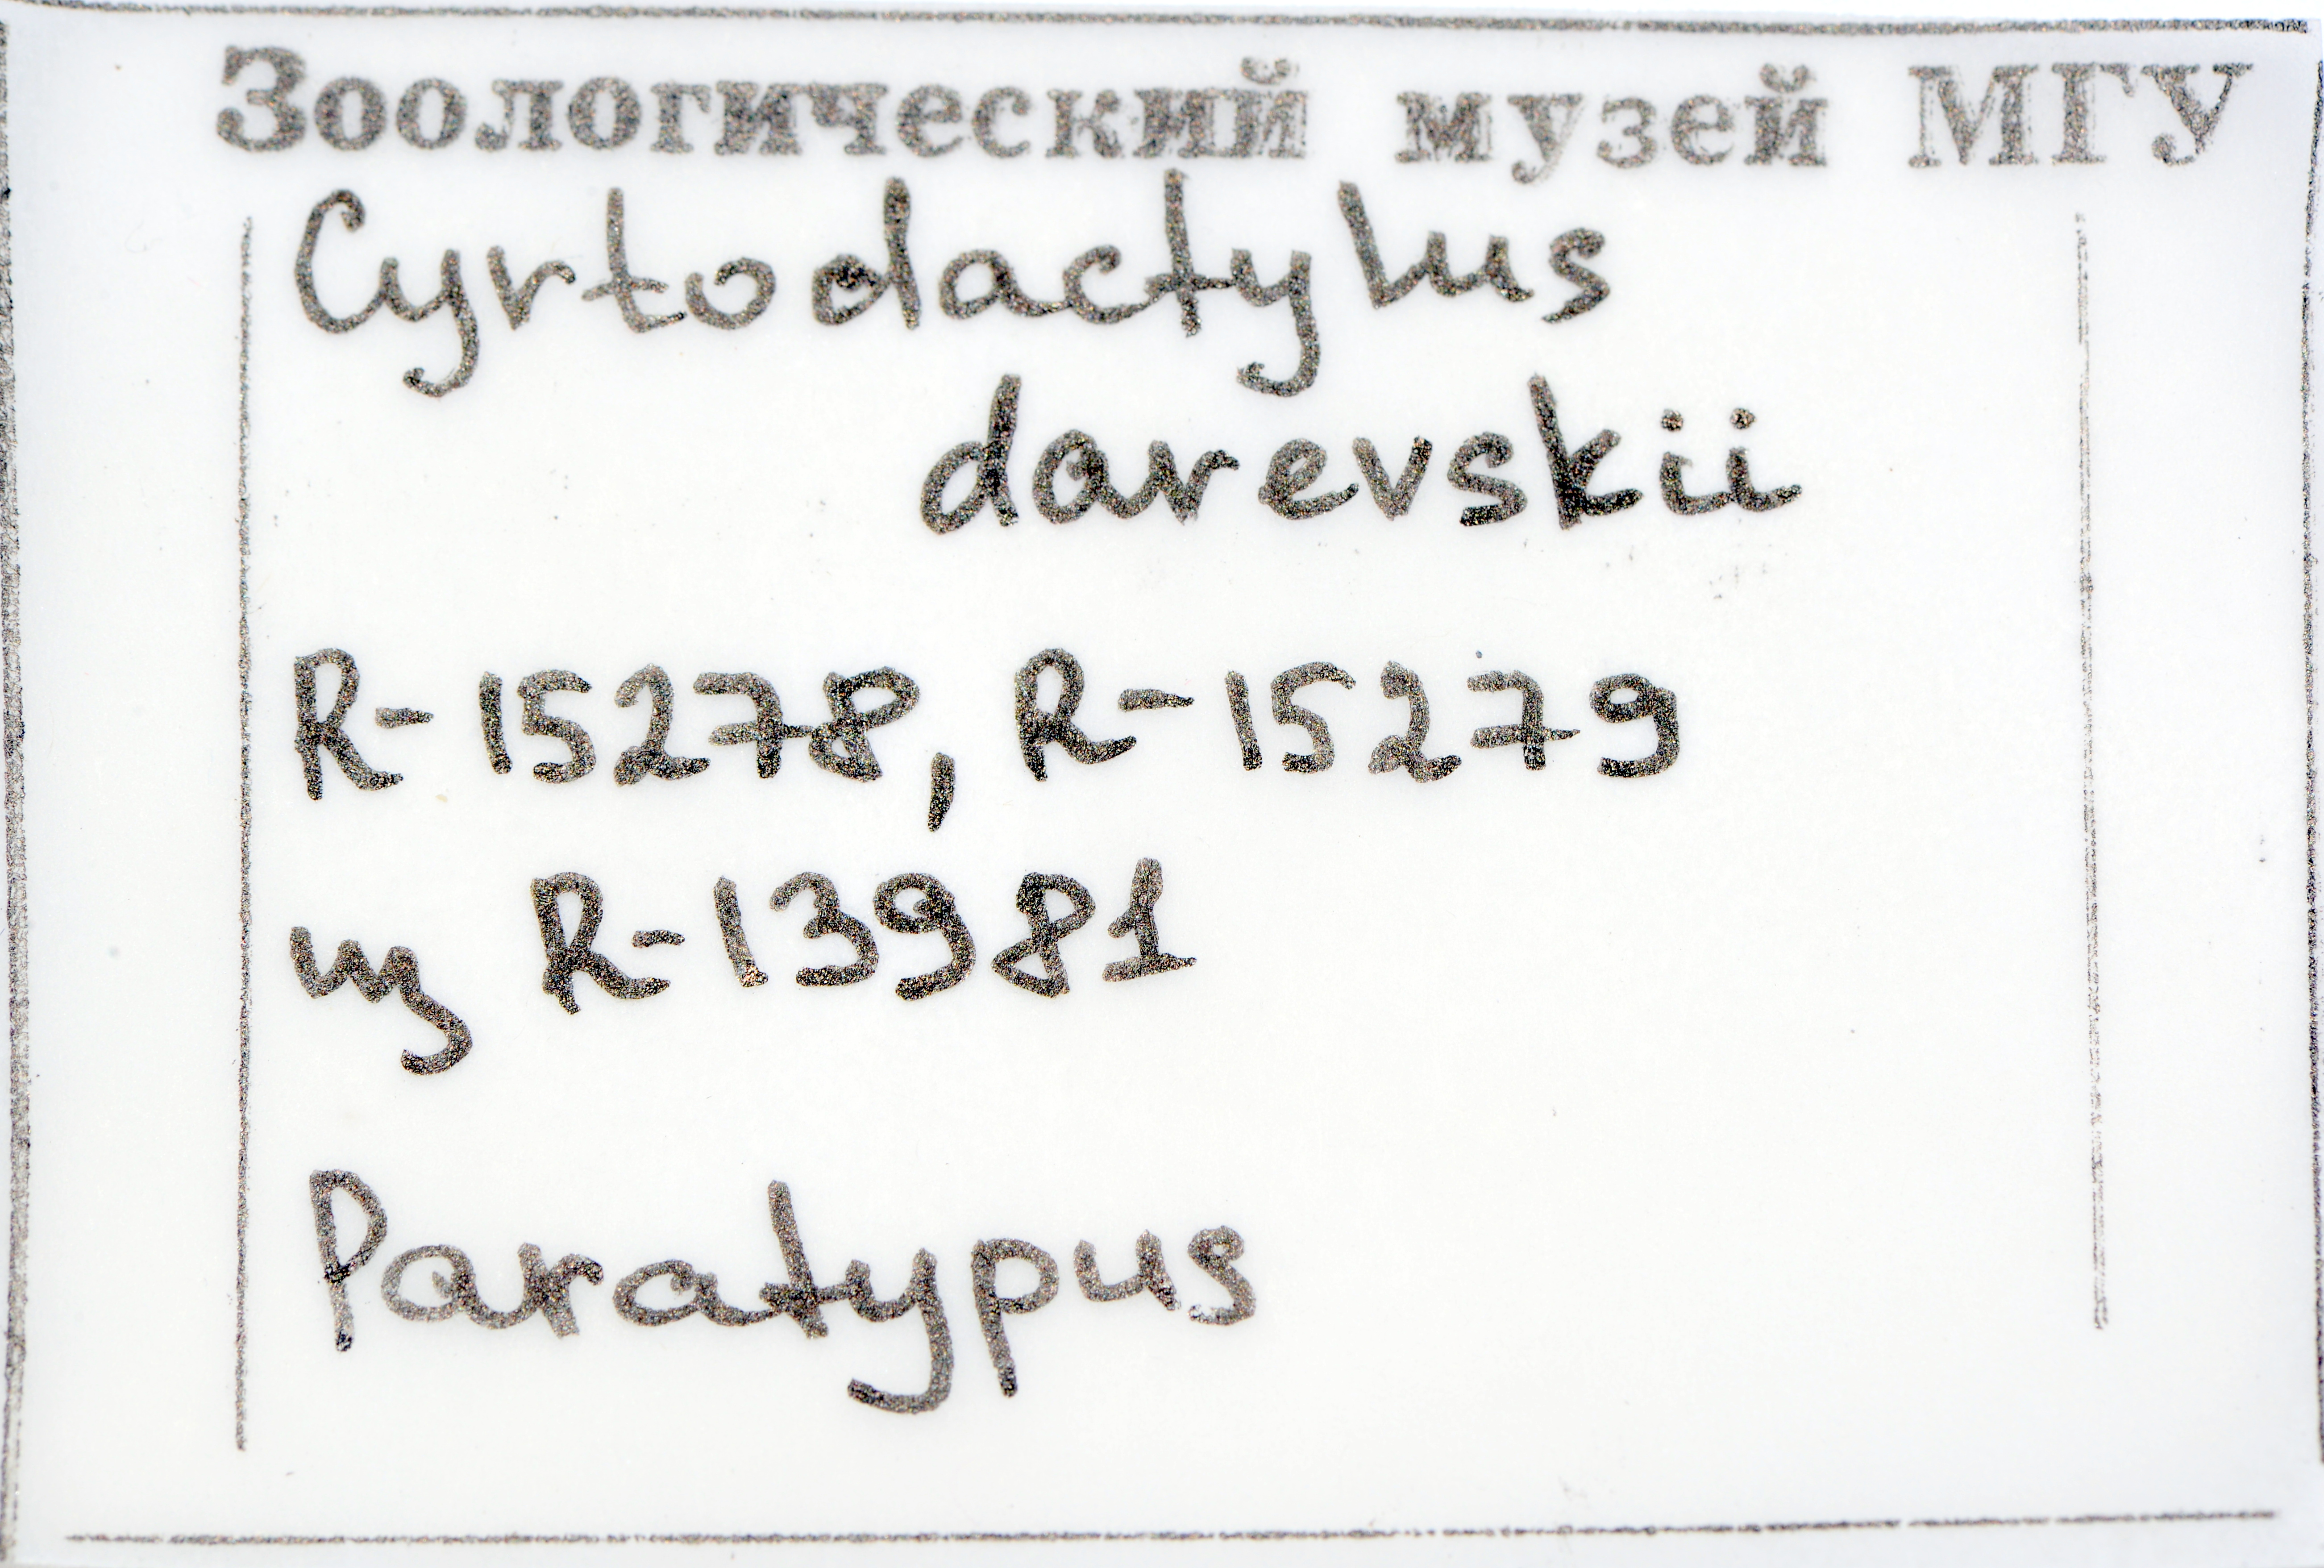 Зоологический музей МГУ
Cyrtodactylus
darevskii
R-15278, R-15279
из R-13981
Paratypus